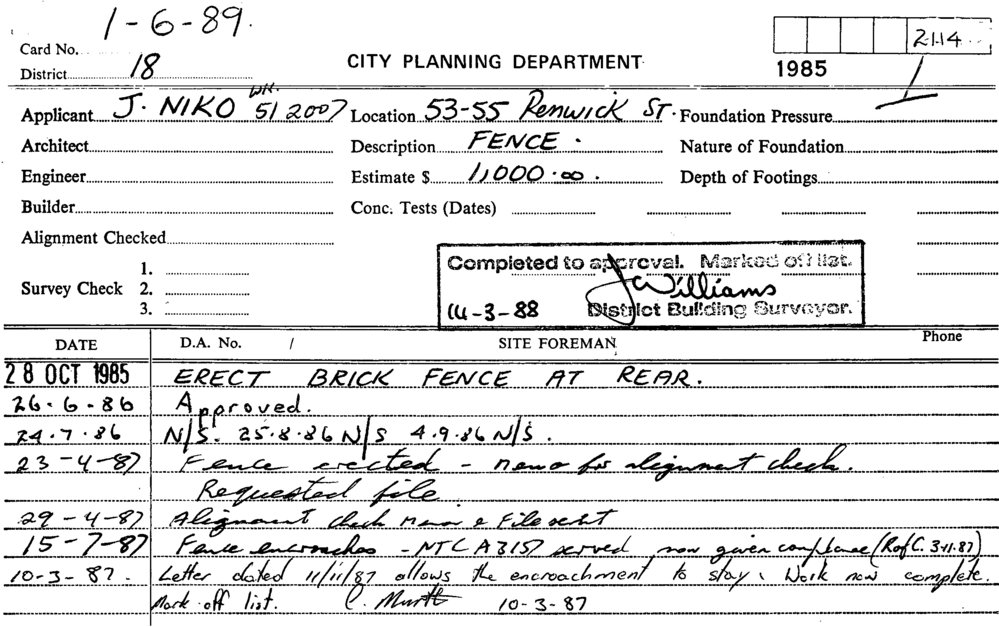 1-6-89.
Card No.
District 18
CITY PLANNING DEPARTMENT
2114
1985
Applicant J. NIKO WK. 51 2007 Location 53-55 Renwick ST. Foundation Pressure
Architect Description FENCE. Nature of Foundation
Engineer Estimate $ 1,000.00. Depth of Footings
Builder Conc. Tests (Dates)
Alignment Checked
Survey Check 1.
2.
3.
Completed to approval. Marked off list.
J Williams
14-3-88 District Building Surveyor.
DATE D.A. No. / SITE FOREMAN Phone
28 OCT 1985 ERECT BRICK FENCE AT REAR.
26.6.86 Approved.
24.7.86 N/S. 25.8.86 N/S 4.9.86 N/S.
23-4-87 Fence erected - memo for alignment check.
Requested file
29-4-87 Alignment check memo & File sent
15-7-87 Fence encroaches - NTC A3157 served, now given compliance (Ref C. 3-11-87)
10-3-87. Letter dated 11/11/87 allows the encroachment to stay. Work now complete.
Mark off list. C. 10-3-87